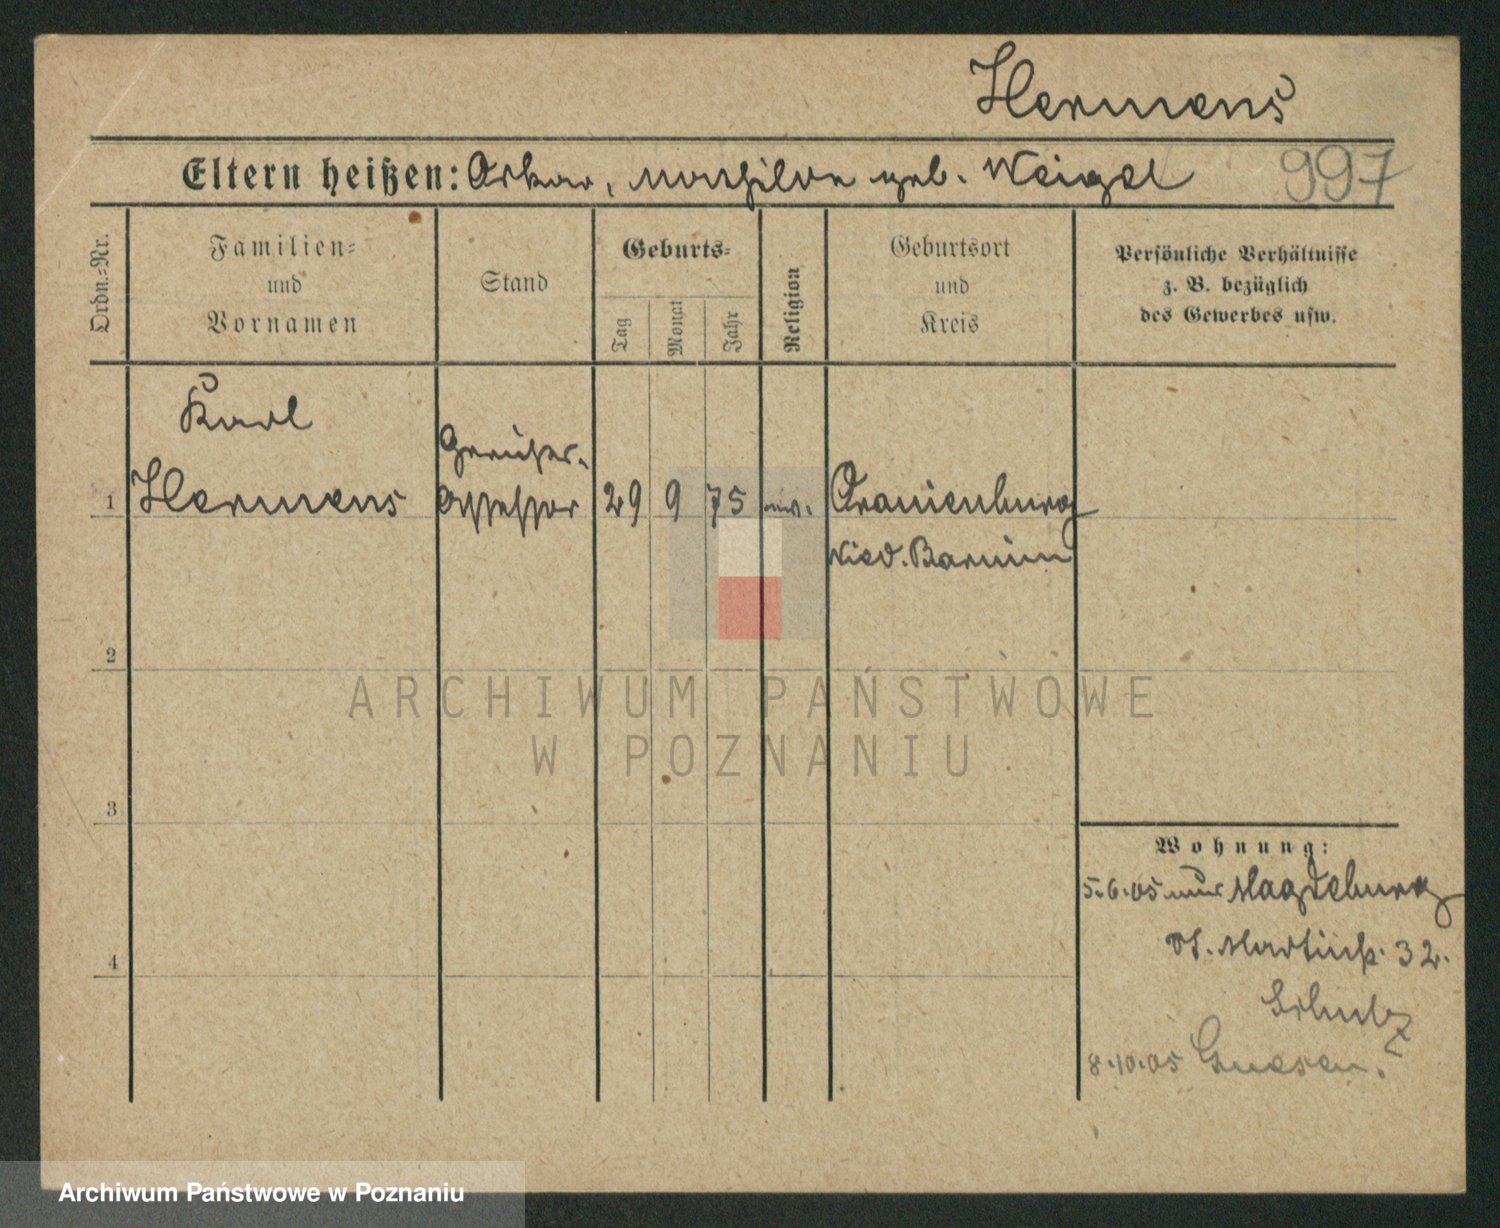 Hermens
Eltern heißen: Oskar, Mathilde geb. Weigel 997
Ordn.-Nr.
Familien-
und
Vornamen
Stand
Geburts-
Tag
Monat
Jahr
Religion
Geburtsort
und
Kreis
Persönliche Verhältnisse
z. B. bezüglich
des Gewerbes usw.
Karl
Gerichts-
1 Hermens Assessor 29 9 75 Oranienburg
Nied. Barnim
2
ARCHIWUM PAŃSTWOWE
W POZNANIU
3
Wohnung:
5.6.05 aus Magdeburg
St. Martinstr. 32.
Schulz
4
8.10.05 Gnesen.
Archiwum Państwowe w Poznaniu